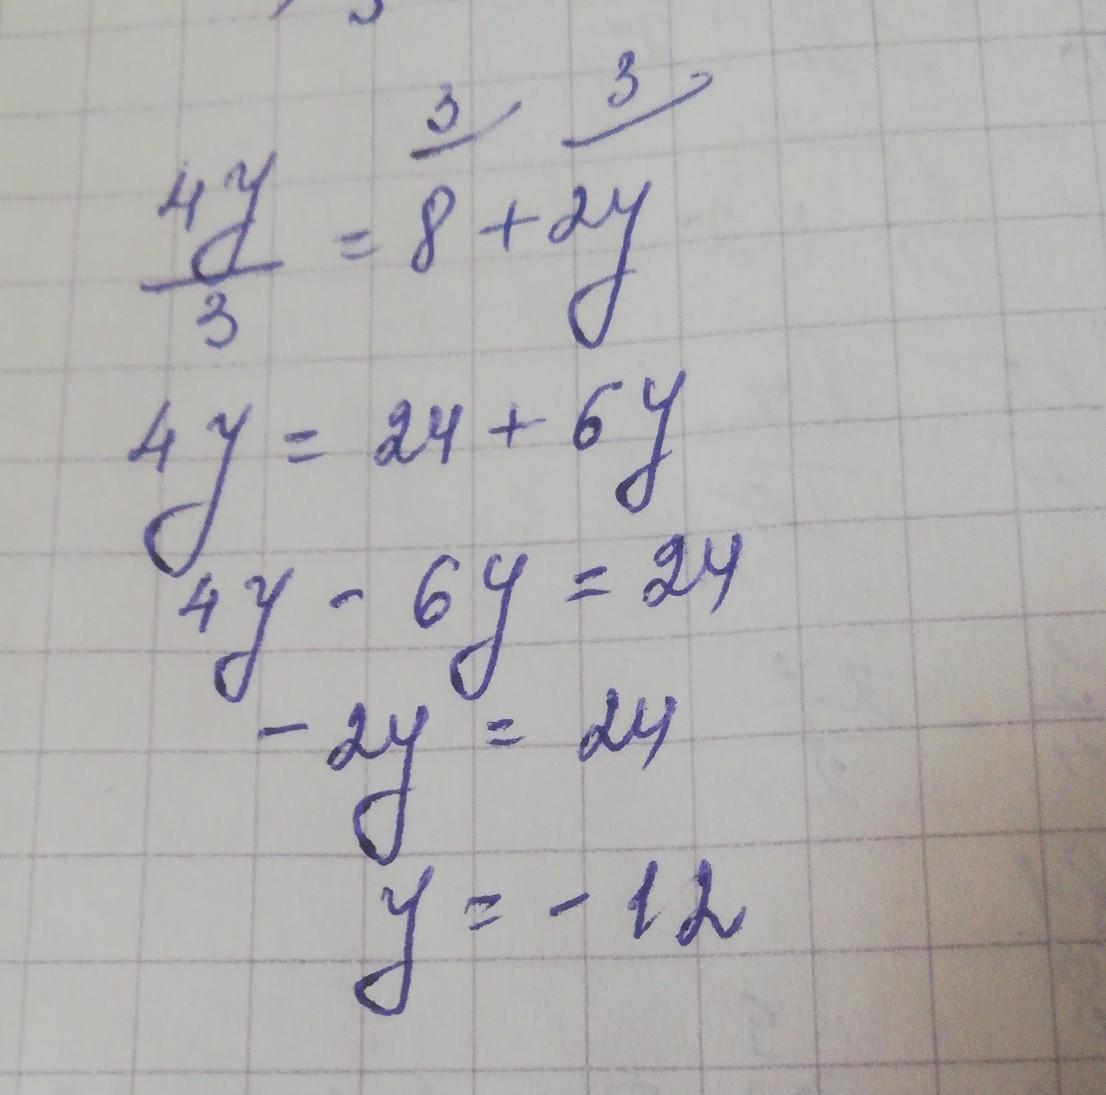 3 3
4y/3 = 8 + 2y
4y = 24 + 6y
4y - 6y = 24
- 2y = 24
y = - 12